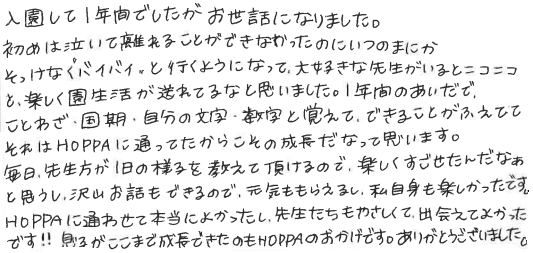 入園して1年間でしたがお世話になりました。
初めは泣いて離れることができなかったのにいつのまにか
そっけなく"バイバイ"と行くようになって、大好きな先生がいるとニコニコ
と、楽しく園生活が送れてるなと思いました。1年間のあいだで、
ことわざ・国期・自分の文字・数字と覚えて、できることがふえてて
それはHOPPAに通ってたからこその成長だなって思います。
毎日、先生方が1日の様子を教えて頂けるので、楽しくすごせたんだなぁ
と思うし、沢山お話もできるので、元気ももらえるし、私自身も楽しかったです。
HOPPAに通わせて本当によかったし、先生たちもやさしくて、出会えてよかった
です!! 息子がここまで成長できたのもHOPPAのおかげです。ありがとうございました。